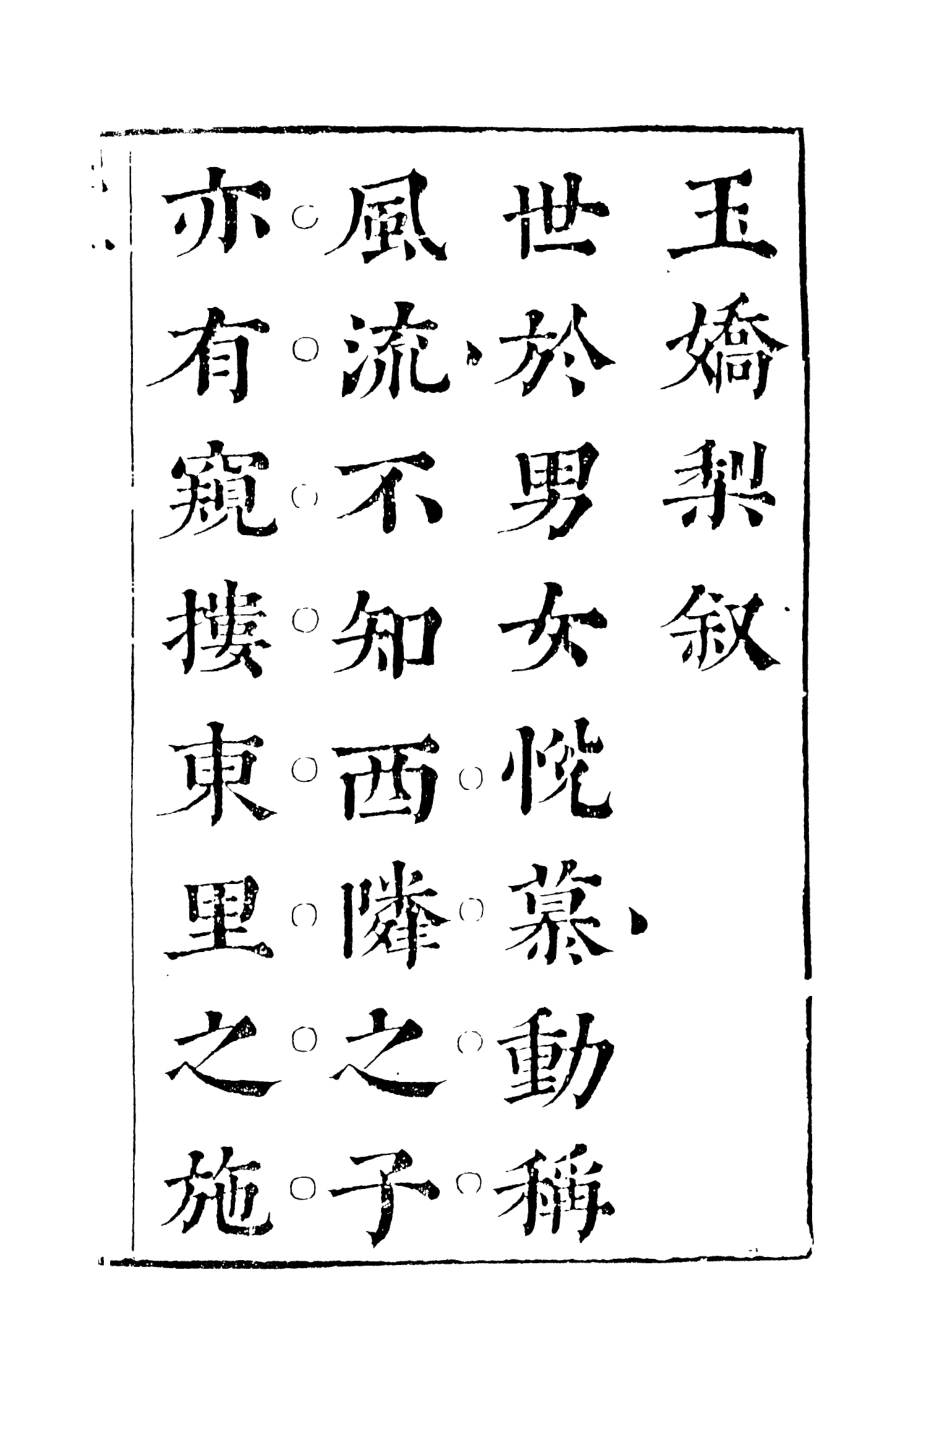 玉嬌梨叙
世於男女悅慕、動稱
風流、不知西隣之子
亦有窺摟東里之施